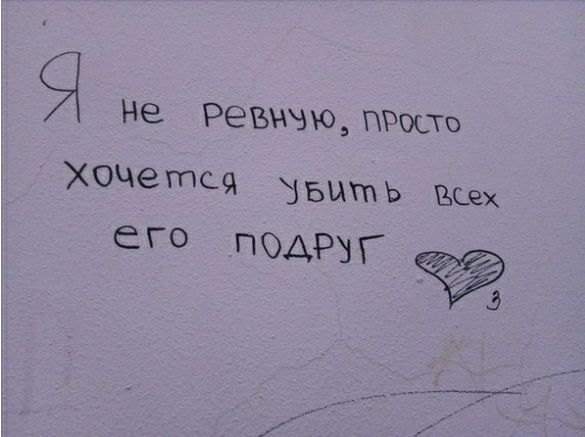 Я не ревную, просто
хочется убить всех
его подруг
з